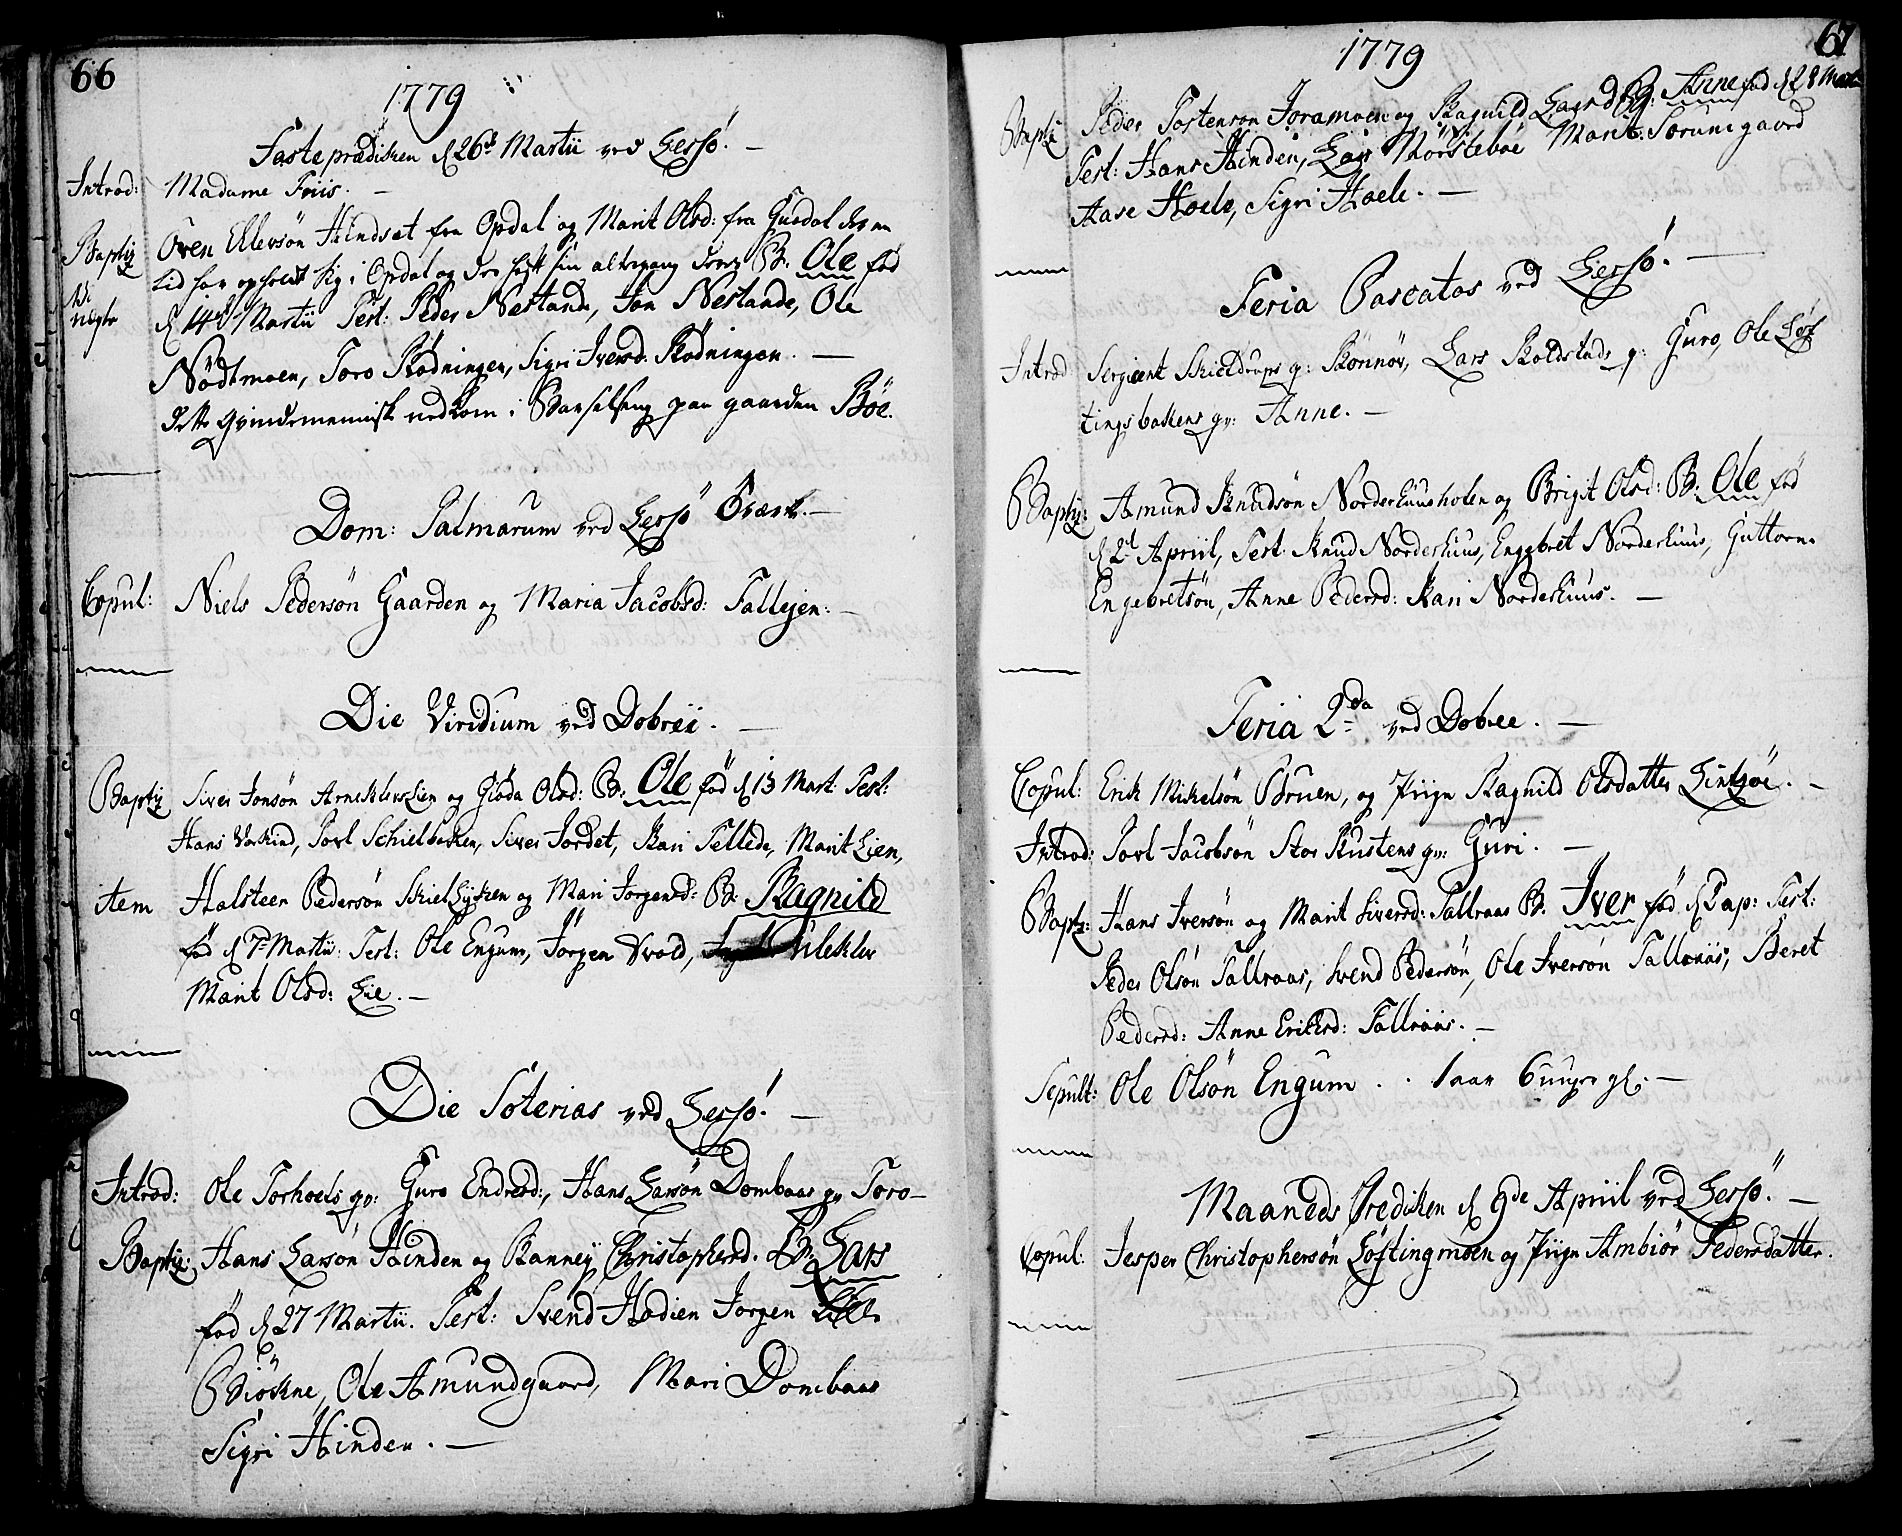 66
1779
Fasteprædiken d 26de Martii ved Lessö. —
Introd: Madame Friis. —
Baptiz Even Ellevsön Hindset fra Opdal og Marit Olsd: fra Guldal der en
tid har opholdt sig i Opdal og der sögt sin altergang deres B. Ole föd
uægte d 14de Martii Test: Peder Nestande, Jon Nestande, Ole
Nödtmoen, Toro Rödningen, Sigri Iversd: Rödningen. —
Dette Qvindemenniske nedkom i Barselseng paa gaarden Böe.
Dom: Palmarum ved Lessö Værk. —
Copul: Niels Pedersön Gaarden og Maria Jacobsd: Tallejen: —
Die Viridium ved Dobreii. —
Baptiz Siver Jonsön Arneklevlien og Giöda Olsd: B: Ole föd d 13 Mart: Test:
Hans Vorkind, Povl Schielbacken, Siver Jordet, Kari Tellede, Marit Lien,
item Halsteen Pedersön Skiellyken og Mari Jorgensd: B: Ragnild
föd d 7de Martii: Test: Ole Engum, Jörgen Svold, Uleklev
Marit Olsd: Lie. —
Die Soterias ved Lessö. —
Introd: Ole Torhoels qv: Guro Endresd:, Hans Larsön Dombaas qv Toro —
Baptiz: Hans Larsön Hinden og Ranney Christophersd. B: Lars
föd d 27 Martii. Test: Svend Hodien Jorgen
Biöskne, Ole Amundgaard, Mari Dombaas
Sigri Hinden. —
67
1779
Bapti: Peder Tostensön Joramoen og Ragnild Larsd B: Anne föd d 28 Martii
Test: Hans Hinden, Lars Mörsteböe Marit Sorumgaard
Aase Hoele, Sigri Hoele. —
Feria Pascatos ved Lessö. —
Introd Sergieant Skieldrups q: Rönnöv, Lars Skoldstads q: Guro, Ole Löf
tingsbakens qv: Anne. —
Baptiz: Amund Knudsön Norderhuusholen og Brigit Olsd: B: Ole föd
d 2d Apriil, Test: Knud Norderhuus, Engebret Norderhuus, Guttorm
Engebretsön, Anne Pedersd: Kari Norderhuus. —
Feria 2da ved Dobree. —
Copul: Erik Mikelsön Bruen, og Piign Ragnild Olsdatter Lintzöe. —
Introd: Povl Jacobsön Stor Rustens qv: Guri. —
Baptz: Hans Iversön og Marit Siversd: Tallraas B. Iver föd d 2 ap: Test:
Peder Olsön Tallraas, Svend Pedersön, Ole Iversön Tallraas, Beret
Pedersd: Anne Eriksd: Tallraas. —
Sepult: Ole Olsön Engum . . 1 aar 6 uuger gl: —
Maaneds Prediken d 9de Apriil ved Lessö. —
Copul: Jesper Christophersön Löftingmoen og Piign Ambiör Pedersdatter.